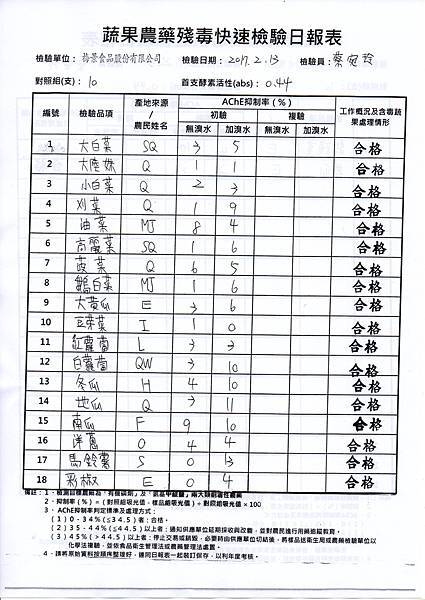 蔬果農藥殘毒快速檢驗日報表
檢驗單位： 梅景食品股份有限公司 檢驗日期： 2017.2.13 檢驗員： 蔡宛玲
對照組(支)： 10 首支酵素活性(abs)： 0.44
編號 檢驗品項 產地來源/農民姓名 AChE抑制率(%) 工作概況及含毒蔬果處理情形
初驗 複驗
無溴水 加溴水 無溴水 加溴水
1 大白菜 SQ 3 5 合格
2 大陸妹 Q 1 1 合格
3 小白菜 Q 2 3 合格
4 刈菜 Q 1 9 合格
5 油菜 MJ 8 4 合格
6 高麗菜 SQ 1 6 合格
7 菠菜 Q 6 5 合格
8 鵝白菜 MJ 1 6 合格
9 大黃瓜 E 3 6 合格
10 豆芽菜 I 1 0 合格
11 紅蘿蔔 L 3 3 合格
12 白蘿蔔 QW 3 10 合格
13 冬瓜 H 4 10 合格
14 地瓜 Q 3 11 合格
15 南瓜 F 9 10 合格
16 洋蔥 O 4 4 合格
17 馬鈴薯 S 0 13 合格
18 彩椒 E 0 4 合格
備註：1、檢測目標農藥為「有機磷劑」及「氨基甲酸鹽」兩大類劇毒性農藥
2、抑制率(%)=(對照組吸光值－樣品組吸光值)÷對照組吸光值×100
3、AChE抑制率判定標準及處理方式：
(1)0-34%(≦34.5)者：合格。
(2)35-44%(≦44.5)以上者：通知供應單位延期採收與改善，並對農民進行用藥追蹤教育。
(3)45%(>44.5)以上者：停止交易或銷毀，必要時由供應單位切結後，將樣品送衛生局或農藥檢驗單位以
化學法複驗，並依食品衛生管理法或農藥管理法處置。
4、請將原始資料按順序整理好，連同日報表一起裝訂保存，以利年度考核。